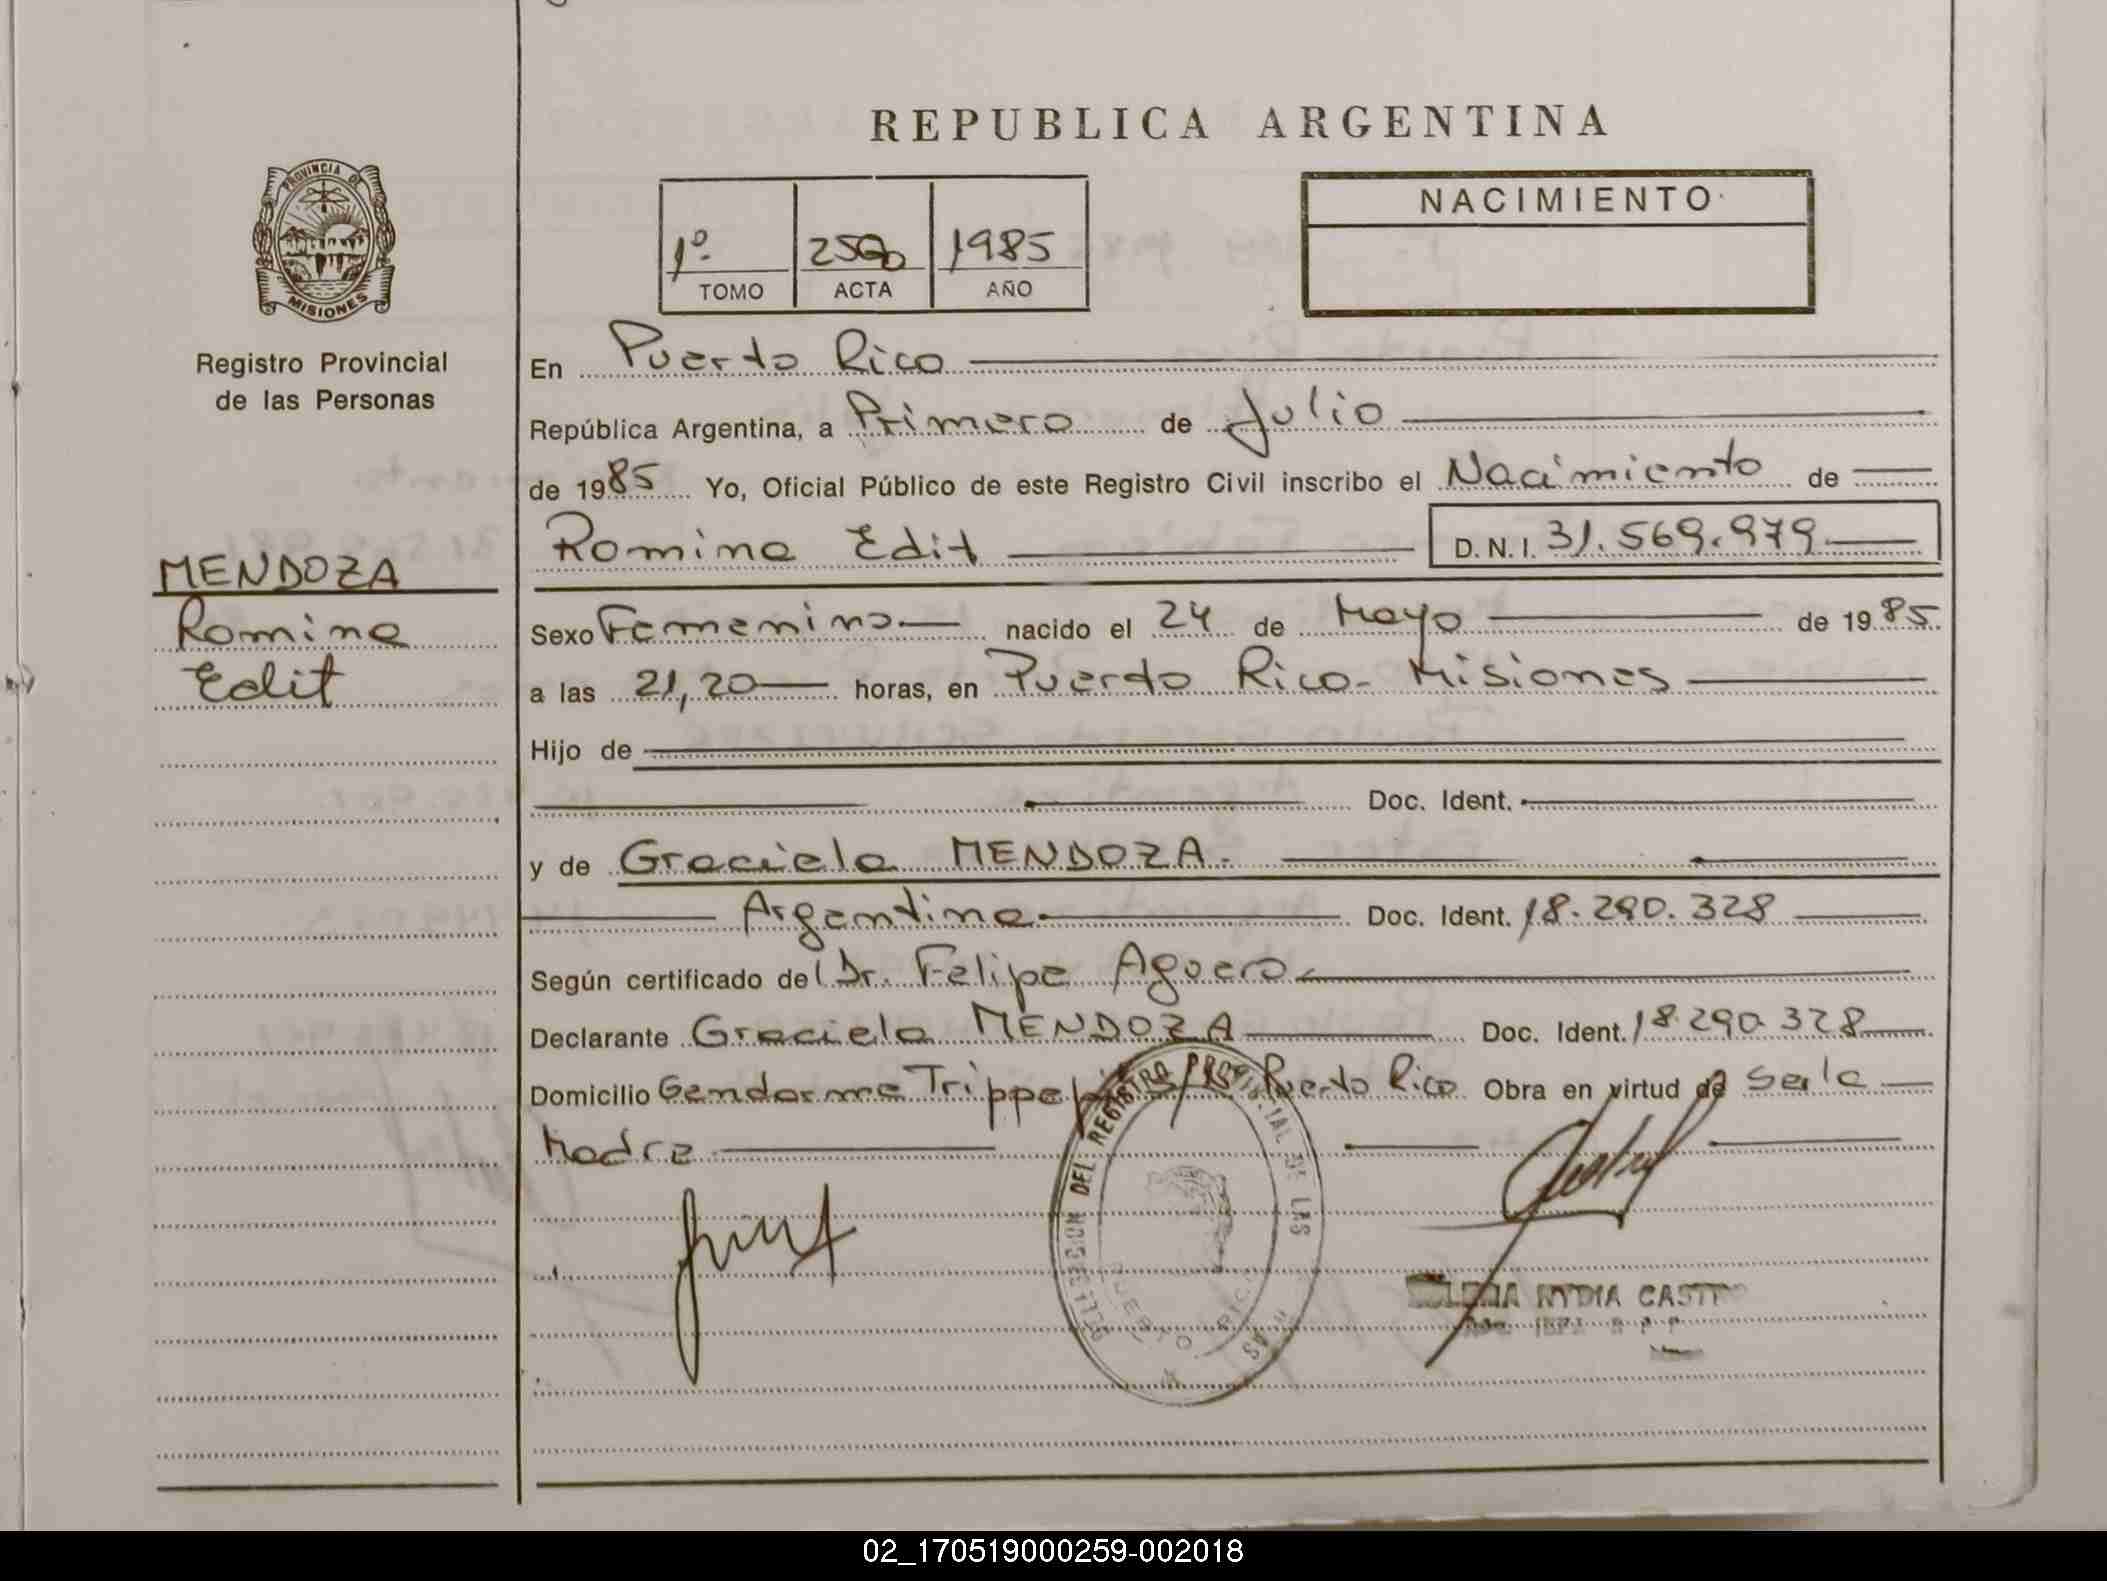 REPUBLICA ARGENTINA
PROVINCIA DE
MISIONES
Registro Provincial
de las Personas
1º 1985
TOMO ACTA AÑO
NACIMIENTO
En Puerto Rico
República Argentina, a Primero de Julio
de 1985 Yo, Oficial Público de este Registro Civil inscribo el Nacimiento de
Romina Edit D.N.I. 31.569.979
MENDOZA
Romina
Edit
Sexo Femenino nacido el 24 de Mayo de 1985
a las 21,20 horas, en Puerto Rico - Misiones
Hijo de
Doc. Ident.
y de Graciela MENDOZA.
Argentina Doc. Ident. 18.290.328
Según certificado del Dr. Felipe Aguero
Declarante Graciela MENDOZA Doc. Ident. 18.290.328
Domicilio Gendarme Puerto Rico Obra en virtud de
Madre
DEL REGISTRO PROVINCIAL DE LAS
PUERTO RICO
NYDIA
02_170519000259-002018